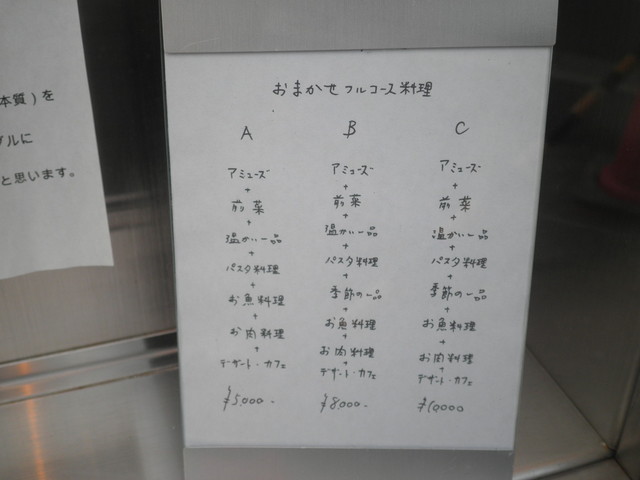 本質)を
グルに
と思います。
おまかせフルコース料理
A
アミューズ
+
前菜
+
温かい一品
+
パスタ料理
+
お魚料理
+
お肉料理
+
デザート・カフェ
¥5,000-
B
アミューズ
+
前菜
+
温かい一品
+
パスタ料理
+
季節の一品
+
お魚料理
+
お肉料理
+
デザート・カフェ
¥8,000-
C
アミューズ
+
前菜
+
温かい一品
+
パスタ料理
+
季節の一品
+
お魚料理
+
お肉料理
+
デザート・カフェ
¥10,000